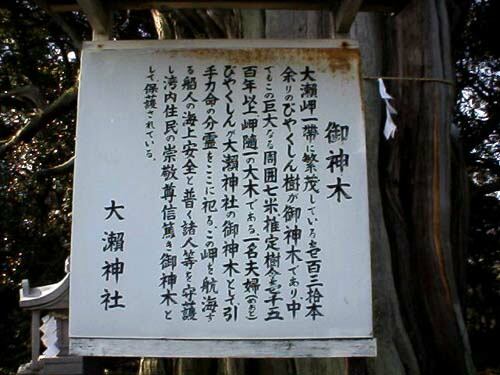 御神木
大瀬岬一帯に繁茂している壱百三拾本
余りのびやくしん樹が御神木であり中
でもこの巨大なる周囲七米推定樹令壱千五
百年以上岬随一の大木である、一名夫婦(めおと)
びやくしんが大瀬神社の御神木として引
手力命の分霊をここに祀る、この岬を航海す
る船人の海上安全と普く諸人等を守護
し湾内住民の崇敬尊信篤き御神木と
して保護されている。
大瀬神社